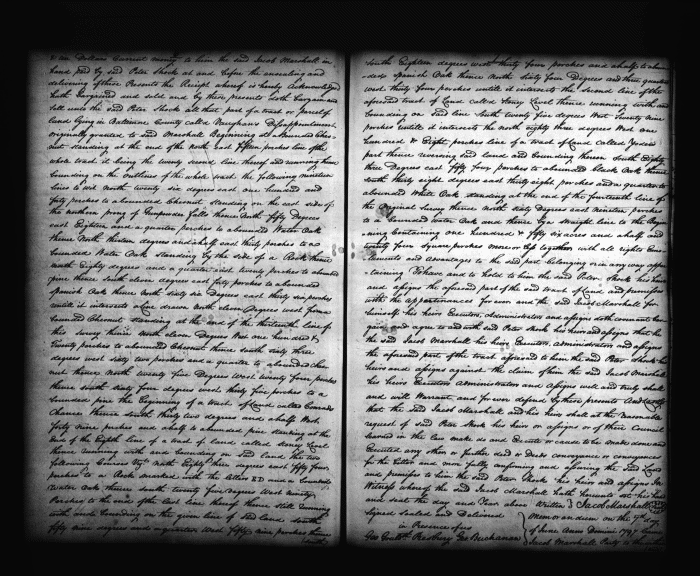 Dollars Current money to him the said Jacob Marshall in
hand paid by said Peter Shock at and before the ensealing and
delivering of these Presents the Receipt whereof is hereby Acknowledged
hath Bargained and sold and by these presents doth Bargain and
sell unto the said Peter Shock all that part of a tract or parcel of
land lying in Baltimore County called Vaughans Disappointment
originally granted to said Marshall Beginning at a Bounded Ches-
nut standing at the end of the north east fifteen perches line of the
whole tract it being the twenty second line thereof and running thence
bounding on the outlines of the whole tract the following nineteen
lines to wit north twenty six degrees east one hundred and
forty perches to a bounded Chesnut standing on the east side of
the northern prong of Gunpowder falls thence North fifty Degrees
east Eighteen and a quarter perches to a bounded Water Oak
thence North thirteen degrees and a half east thirty perches to a
bounded Water Oak standing by the side of a Rock thence
north Eighty degrees and a quarter east twenty perches to a bounded
pine thence south eleven degrees east forty perches to a bounded
spanish Oak thence North sixty six Degrees east thirty six perches
untill it intersects a line drawn north eleven Degrees west from a
bounded Chesnut standing at the end of the thirteenth line of
this survey thence north eleven Degrees West one hundred &
Twenty perches to a bounded Chesnut thence south sixty three
degrees west sixty two perches and a quarter to a bounded Ches
nut thence North twenty five Degrees West twenty four perches
thence south sixty four degrees west thirty five perches to a
bounded pine the beginning of a tract of Land called Conrads
Chance thence south thirty two degrees and a half West
forty nine perches and a half to a bounded pine standing at the
End of the Eighth line of a tract of land called Stoney Level
thence running with and bounding on said land the two
following Courses Viz. North Eighty three degrees east fifty four
perches to a Rock marked with the letters and a bounded
Water Oak thence south twenty five degrees West ninety
Perches to the end of the last line thereof thence still running
with and bounding on the given line of said land south
fifty nine degrees and a quarter West fifty nine perches thence
south
South Eighteen degrees west thirty four perches and a half to a boun
ded spanish Oak thence North sixty four Degrees and three quarters
west thirty four perches until it intersects the second line of the
aforesaid tract of Land called Stoney Level thence running with and
bounding on said line South twenty five degrees West Twenty nine
perches untill it intersects the north eighty three degrees West one
hundred & Eight perches line of a tract of Land called
part thence reversing said land and bounding thereon South Eighty
three Degrees East fifty four perches to a bounded black Oak thence
South thirty eight degrees east thirty eight perches and a quarter to
a bounded White Oak standing at the end of the fourteenth line of
the Original Survey thence North sixty Degrees east Nineteen perches
to a bounded water Oak and thence by a straight line to the Begin
ning Containing one hundred & fifty six acres and a half and
twenty four square perches more or less together with all rights Emo
luments and advantages to the said part belonging or in any way apper
taining To have and to hold to him the said Peter Shock his heirs
and assigns the aforesaid part of the said tract of Land and premises
with the appurtenances for ever and the said Jacob Marshall for
himself his heirs Executors Administrators and assigns doth covenant bar
gain and agree to and with said Peter Shock his heirs and assigns that he
the said Jacob Marshall his heirs Executors administrators and assigns
the aforesaid part of the tract aforesaid to him the said Peter Shock his
heirs and assigns against the claim of him the said Jacob Marshall
his heirs Executors administrators and assigns will and truly shall
and will Warrant and for ever defend by these presents And lastly
that the said Jacob Marshall and his heirs shall at the reasonable
request of said Peter Shock his heirs or assigns or of their Council
learned in the law make do and Execute or cause to be made done and
Executed any other or further deed or Deeds conveyance or conveyances
for the better and more fully confirming and assuring the said Lands
and premises to him the said Peter Shock his heirs and assigns In
Witness whereof the said Jacob Marshall hath hereunto set his hand
and seal the day and Year above Written Jacob Marshall
Signed Sealed and Delivered
in Presence of us
Geo Gouldth Presbury Geo Buchanan
Memorandum on the 7th day
of June Anno Domini 1797
Jacob Marshall Party to the